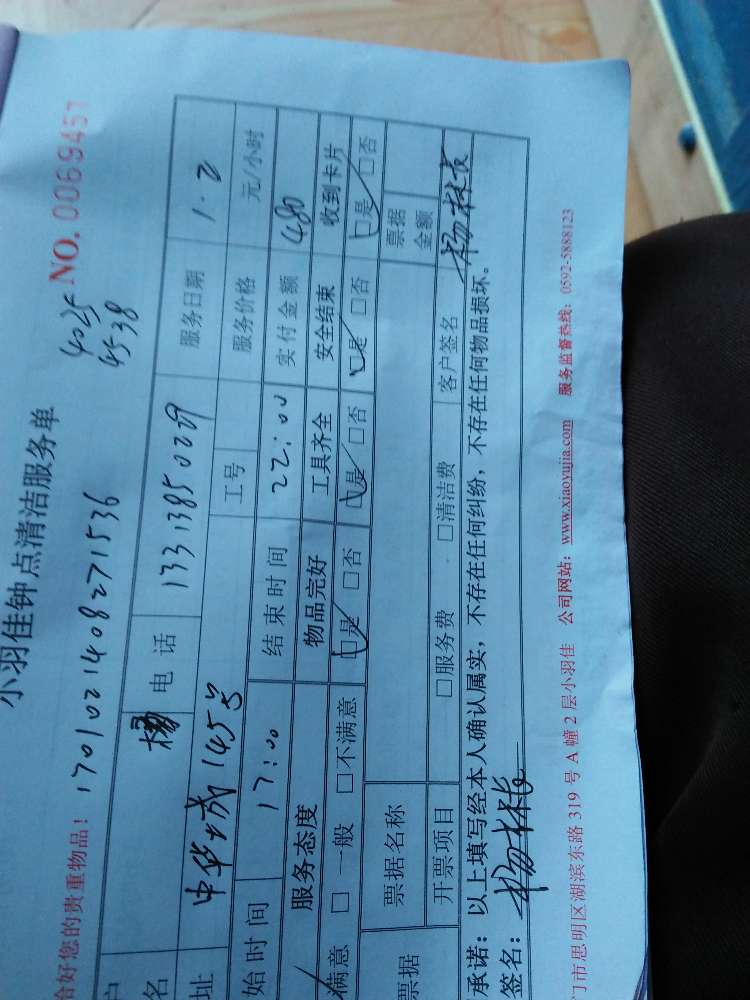 小羽佳钟点清洁服务单 NO. 0069457
4025
4538
恰好您的贵重物品! 17010214082 71536
户名 杨 电话 13313850229 服务日期 1.2
址 中华城145号 工号 服务价格 元/小时
始时间 17:00 结束时间 22:00 实付金额 480
服务态度 物品完好 工具齐全 安全结束 收到卡片
满意 □一般 □不满意 □是 □否 □是 □否 □是 □否 □是 □否
票据 票据名称 票据金额
开票项目 □服务费 □清洁费 客户签名 杨林长
承诺:以上填写经本人确认属实,不存在任何纠纷,不存在任何物品损坏。
签名:杨林长
门市思明区湖滨东路 319 号 A 幢 2 层小羽佳 公司网站:www.xiaoyujia.com 服务监督热线:0592-5888123